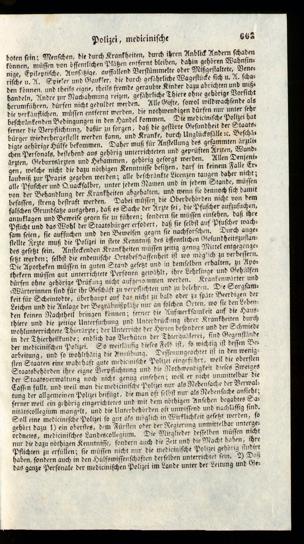 Polizei, medicinische 663
boten sein; Menschen, die durch Krankheiten, durch ihren Anblick Andern schaden
können, müssen von öffentlichen Plätzen entfernt bleiben, dahin gehören Wahnsin-
nige, Epileptische, Aussätzige, auffallend Verstümmelte oder Mißgestaltete, Bene-
u. A. Spieler und Gaukler, die durch gefährliche Wagestücke sich u. A. scha-
den können, und theils eigne, theils fremde geraubte Kinder dazu abrichten und miß-
handeln, Andre zur Nachahmung reizen, gefährliche Thiere ohne gehörige Vorsicht
herumführen, dürfen nicht geduldet werden. Alle Gifte, sowol wildwachsende als
die verkäuflichen, müssen entfernt werden, die nothwendigen dürfen nur unter sehr
beschränkenden Bedingungen in den Handel kommen. Die medicinische Polizei hat
ferner die Verpflichtung, dafür zu sorgen, daß die gestörte Gesundheit der Staats-
bürger wiederhergestellt werden kann, und Kranke, durch Unglücksfälle ꝛc. Beschä-
digte gehörige Hülfe bekommen. Daher muß für Anstellung des gesammten ärztli-
chen Personals, bestehend aus gehörig unterrichteten und geprüften Ärzten, Wund-
ärzten, Geburtsärzten und Hebammen, gehörig gesorgt werden. Allen Denjeni-
gen, welche nicht die dazu nöthigen Kenntnisse besitzen, darf in keinem Falle Er-
laubniß zur Praxis gegeben werden; alle beschränkte Licenzen taugen daher nicht;
alle Pfuscher und Quacksalber, unter jedem Namen und in jedem Stande, müssen
von der Behandlung der Krankheiten abgehalten, und wenn sie dennoch sich damit
befassen, streng bestraft werden. Dabei müssen die Oberbehörden nicht von dem
falschen Grundsatze ausgehen, daß es Sache der Ärzte sei, die Pfuscher aufzusuchen,
anzuklagen und Beweis gegen sie zu führen; sondern sie müssen einsehen, daß ihre
Pflicht und das Wohl der Staatsbürger erfodert, daß sie selbst auf Pfuscher nach-
sam sein, sie auffuchen und den Beweisen gegen sie nachforschen. Durch ange-
stellte Ärzte muß die Polizei in stete Kenntniß des öffentlichen Gesundheitszustan-
des gesetzt sein. Ansteckenden Krankheiten müssen jenig genug Mittel entgegenge-
setzt werden; selbst die endemische Ortsbeschaffenheit ist wo möglich zu verbessern.
Die Apotheken müssen in guten Stand gesetzt und in demselben erhalten, zu Apo-
thekern müssen gut unterrichtete Personen gewählt, ihre Lehrlinge und Gehülfen
dürfen ohne gehörige Prüfung nicht aufgenommen werden. Krankenwärter und
Wärterinnen sind für ihr Geschäft zu verpflichten und zu belehren. Die Sorgsam-
keit für Scheintodte, überhaupt auf das nicht zu bald oder zu späte Beerdigen der
Leichen und die Anlage der Begräbnißplätze nur an solchen Orten, wo sie den Leben-
den keinen Nachtheil bringen können; ferner die Aufmerksamkeit auf die Haus-
thiere und die zeitige Untersuchung und Unterdrückung ihrer Krankheiten durch
wohlunterrichtete Thierärzte; der Unterricht der Hirten besonders und der Schmiede
in der Thierheilkunde; endlich das Verhüten der Thierquälerei, sind Gegenstände
der medicinischen Polizei. So weitläufig dieses Feld ist, so wichtig ist dessen Be-
arbeitung, und so wohlthätig die Ausübung. Dessenungeachtet ist in den wenig-
sten Staaten eine wahrhaft gute medicinische Polizei eingeführt, weil die obersten
Staatsbehörden ihre eigne Verpflichtung und die Nothwendigkeit dieses Zweiges
der Staatsverwaltung noch nicht genug einsehen; weil er nicht unmittelbar die
Cassen füllt, und weil man die medicinische Polizei nur als Nebensache der Verwal-
tung der allgemeinen Polizei beifügt, die man oft selbst nur als Nebensache ansieht;
ferner weil ein gehörig eingerichtetes und mit dem nöthigen Ansehen begabtes Sa-
nitätscollegium mangelt, und die Unterbehörden oft unwissend und nachlässig sind.
Soll eine medicinische Polizei so gut als möglich in Wirklichkeit gesetzt werden, so
gehört dazu 1) ein oberstes, dem Fürsten oder der Regierung unmittelbar unterge-
ordnetes, medicinisches Landescollegium. Die Mitglieder desselben müssen nicht
nur die dazu nöthigen Kenntnisse, sondern auch die Zeit und die Macht haben, ihre
Pflichten zu erfüllen; sie müssen nicht nur die medicinische Polizei gehörig studirt
haben, sondern auch in den Hülfswissenschaften derselben unterrichtet sein. 2) Daß
das ganze Personale der medicinischen Polizei im Lande unter der Leitung und Ge-